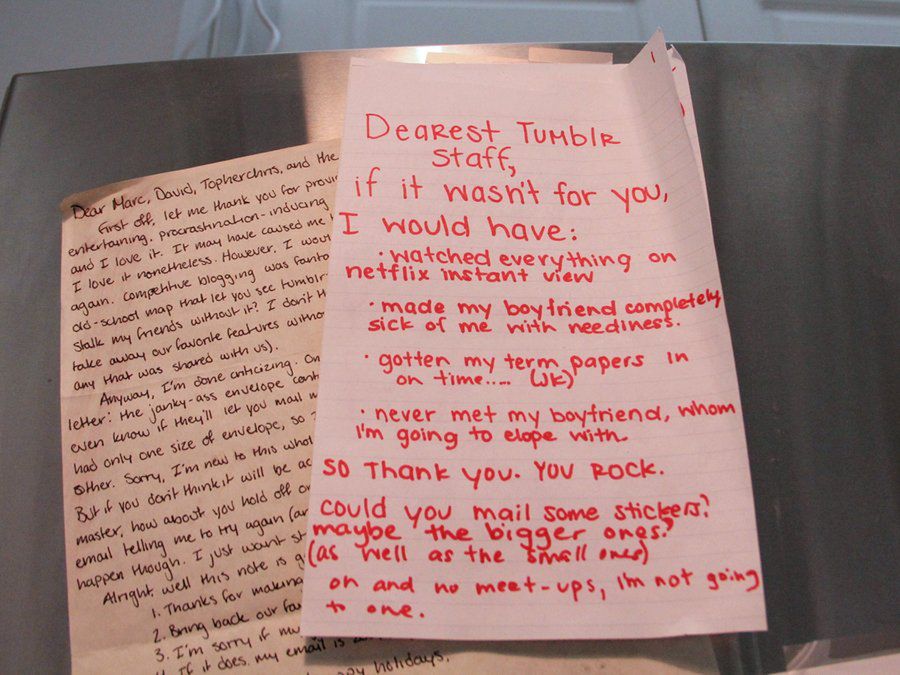 Dear Marc, David, Topherchris, and the
First off, let me thank you for provi
entertaining, procrastination-inducing
and I love it. It may have caused me
I love it nonetheless. However, I wou
again. Competitive blogging was fanta
old-school map that let you see tumblr
stalk my friends without it? I don't th
take away our favorite features witho
any that was shared with us).
Anyway, I'm done criticizing. On
letter: the janky-ass envelope cont
even know if they'll let you mail m
had only one size of envelope, so
other. Sorry, I'm new to this whol
But if you don't think it will be ac
master, how about you hold off on
email telling me to try again (an
happen though. I just want st
Alright, well this note is g
1. Thanks for making
2. Bring back our fav
3. I'm sorry if my
If it does, my email is
holidays.
Dearest Tumblr
Staff,
if it wasn't for you,
I would have:
· watched everything on
netflix instant view
· made my boyfriend completely
sick of me with neediness.
· gotten my term papers in
on time.... (jk)
· never met my boyfriend, whom
I'm going to elope with.
So Thank you. You Rock.
could you mail some stickers?
maybe the bigger ones?
(as well as the small ones)
oh and no meet-ups, I'm not going
to one.